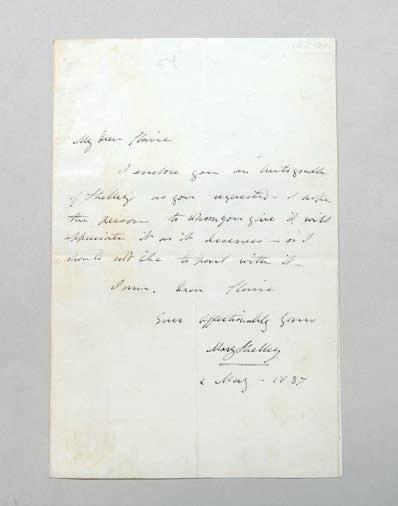 My dear Claire
I enclose you an Autograph
of Shelley as you requested - I hope
the person to whom you give it will
appreciate it as it deserves - or I
should not like to part with it -
I am, dear Claire
Ever Affectionately Yours
Mary Shelley
2 May - 1837